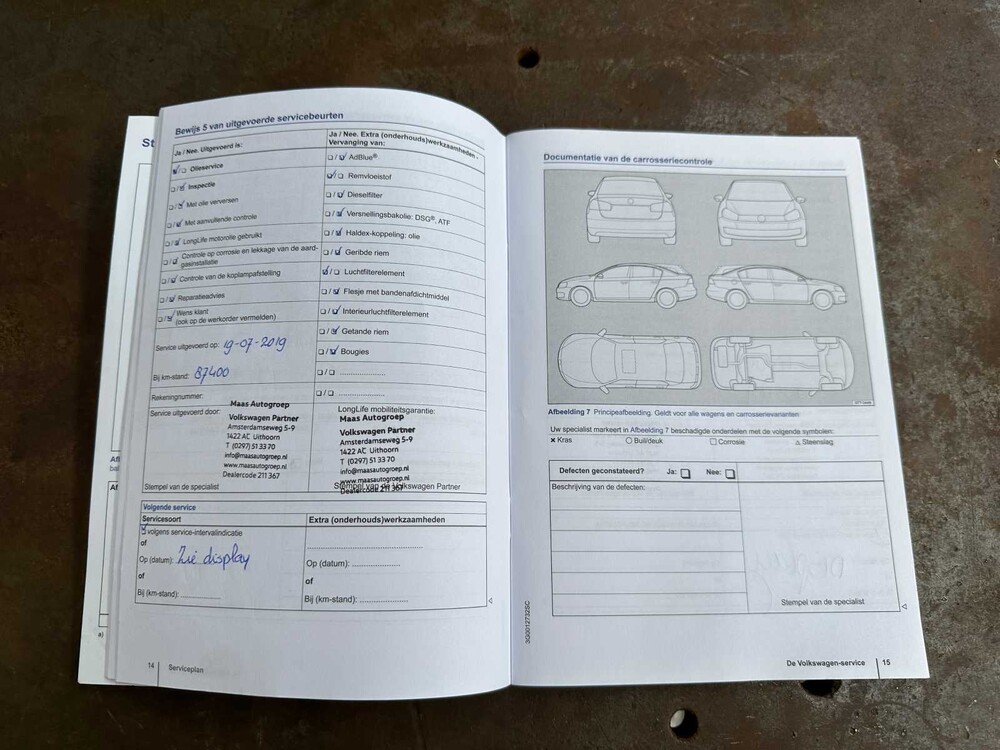 St
Bewijs 5 van uitgevoerde servicebeurten
Ja / Nee. Uitgevoerd is:
Ja / Nee. Extra (onderhouds)werkzaamheden -
Vervanging van:
Olieservice
Inspectie
Met olie verversen
Met aanvullende controle
LongLife motorolie gebruikt
Controle op corrosie en lekkage van de aard-
gasinstallatie
Controle van de koplampafstelling
Reparatieadvies
Wens klant
(ook op de werkorder vermelden)
AdBlue®
Remvloeistof
Dieselfilter
Versnellingsbakolie: DSG®, ATF
Haldex-koppeling: olie
Geribde riem
Luchtfilterelement
Flesje met bandenafdichtmiddel
Interieurluchtfilterelement
Getande riem
Bougies
Service uitgevoerd op: 19-07-2019
Bij km-stand: 87400
Rekeningnummer:
Service uitgevoerd door:
Maas Autogroep
Volkswagen Partner
Amsterdamseweg 5-9
1422 AC Uithoorn
T (0297) 51 33 70
info@maasautogroep.nl
www.maasautogroep.nl
Dealercode 211 367
Stempel van de specialist
LongLife mobiliteitsgarantie:
Maas Autogroep
Volkswagen Partner
Amsterdamseweg 5-9
1422 AC Uithoorn
T (0297) 51 33 70
info@maasautogroep.nl
www.maasautogroep.nl
Dealercode 211 367
Stempel van de Volkswagen Partner
Volgende service
Servicesoort
volgens service-intervalindicatie
of
Op (datum): Zie display
of
Bij (km-stand): ............
Extra (onderhouds)werkzaamheden
Op (datum): ............
of
Bij (km-stand): ............
a)
14 Serviceplan
Documentatie van de carrosseriecontrole
Afbeelding 7 Principeafbeelding. Geldt voor alle wagens en carrosserievarianten.
Uw specialist markeert in Afbeelding 7 beschadigde onderdelen met de volgende symbolen:
× Kras ○ Buil/deuk □ Corrosie △ Steenslag
Defecten geconstateerd? Ja: Nee:
Beschrijving van de defecten:
Stempel van de specialist
3G0012732SC
De Volkswagen-service 15